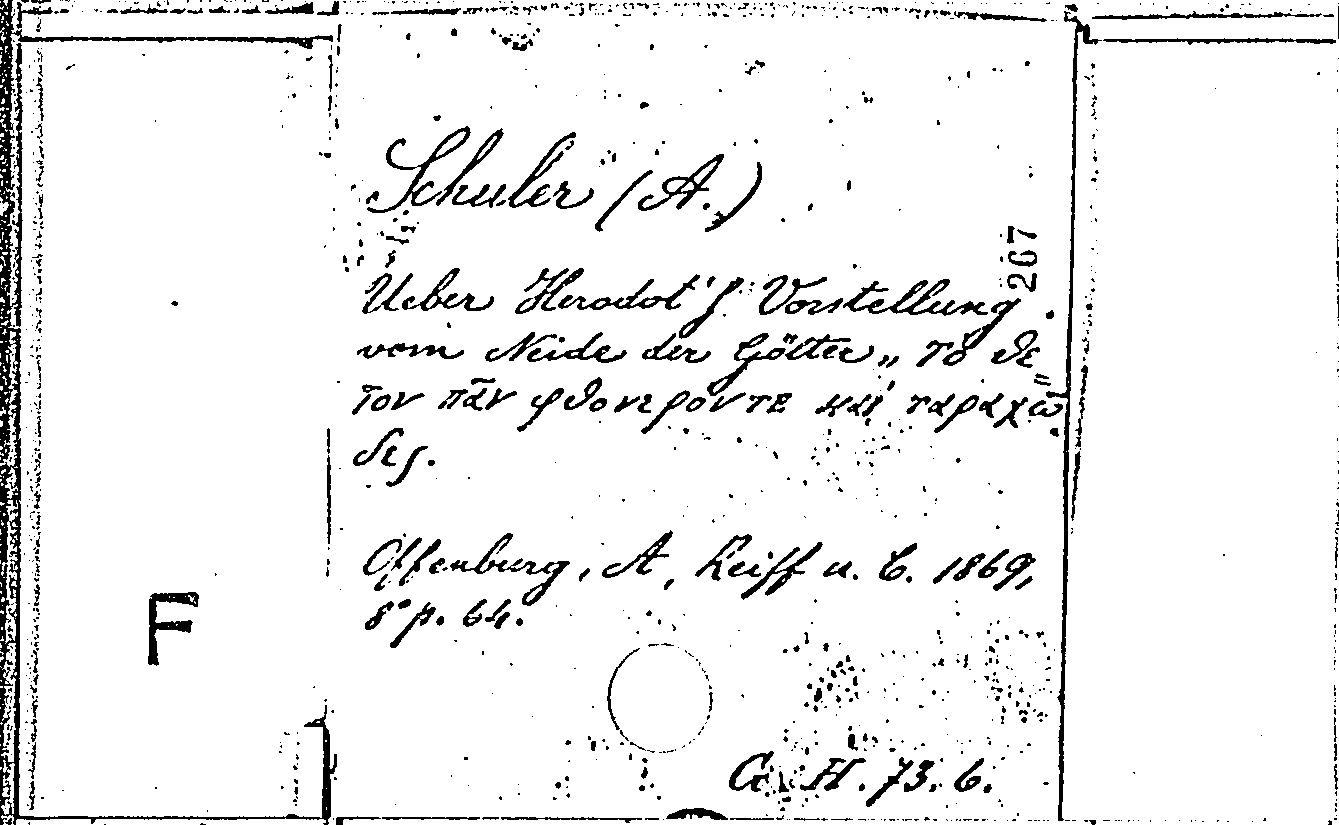 Schuler (A.)
267
Ueber Herodot's Vorstellung
vom Neide der Götter „ τὸ θε
ῖον πᾶν φθονερόν τε καὶ ταραχῶ
δες.
Offenburg, A, Reiff u. C. 1869,
8° p. 64.
F
G. H. 73. 6.